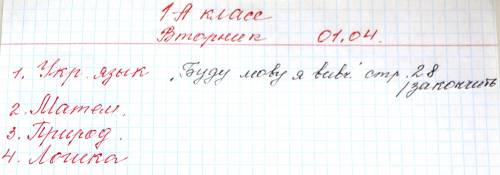 1-А класс
Вторник 01.04.
1. Укр. язык „Буду мову я вивч." стр. 28
/закончить
2. Матем.
3. Природ.
4. Логика